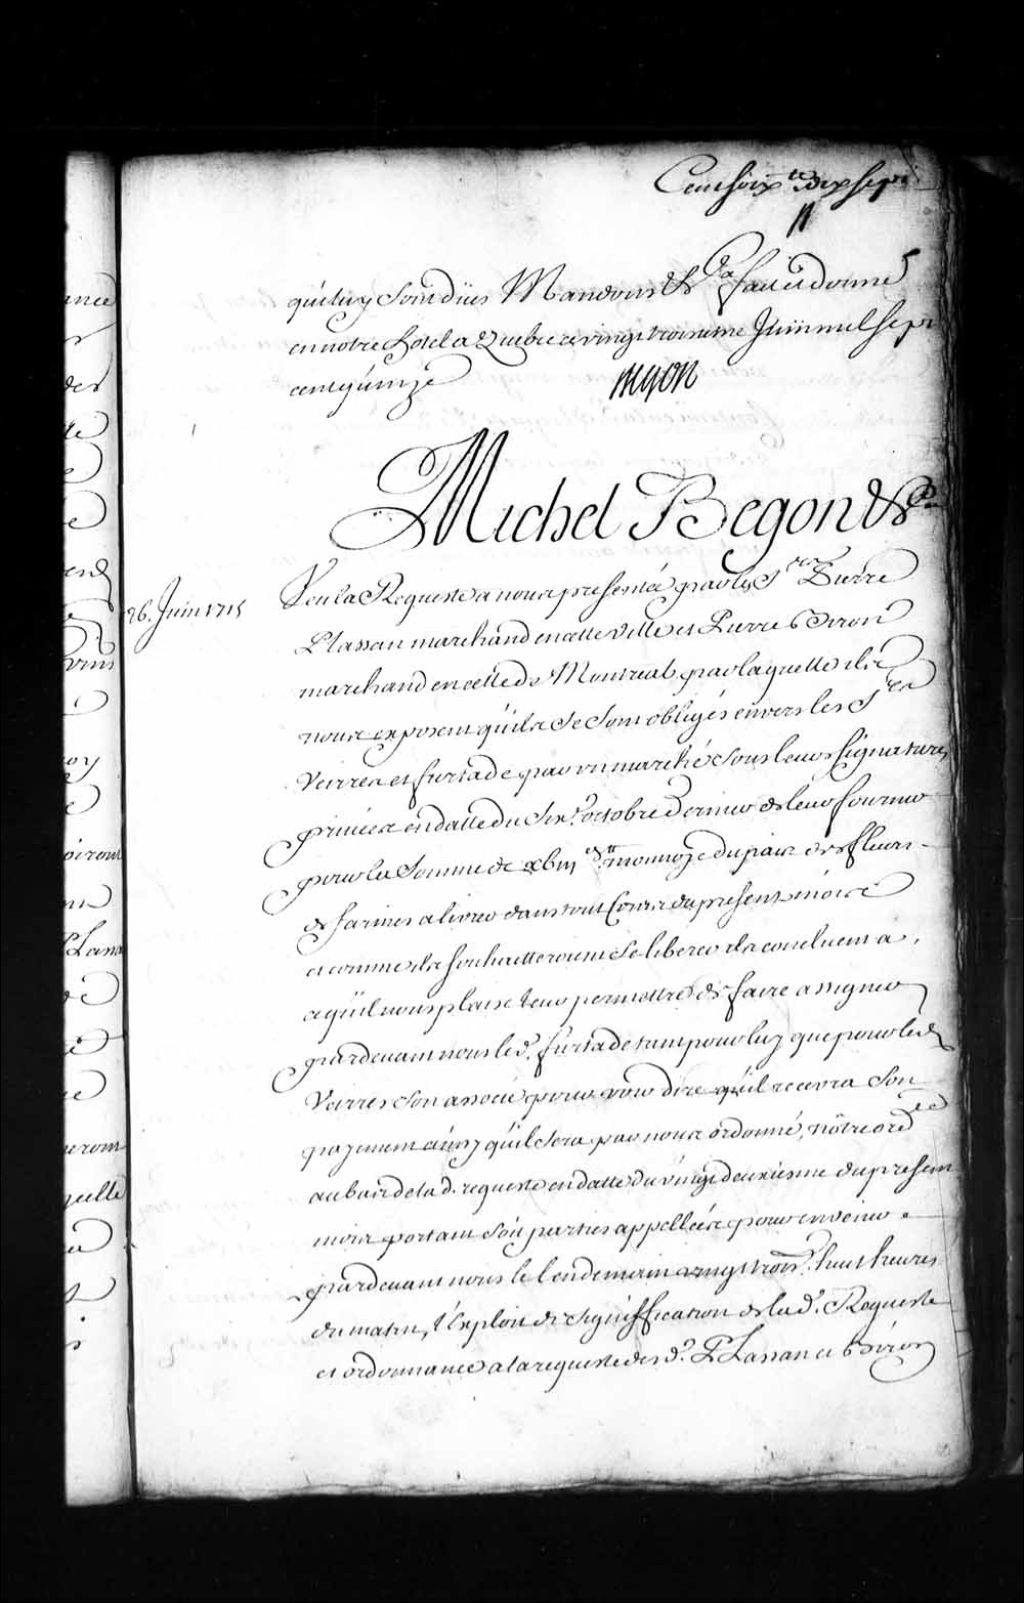 Cent soix.te dix sept
qui luy sont dües Mandons &c.a fait et donné
en notre hotel a Quebec ce vingt troisieme Juin mil sept
cent quinze Begon
Michel Begon &c.a
26. Juin 1715
Veu la Requeste a nous presentée par les S.rs Pierre
Plassan marchand en cette ville et Pierre Biron
marchand en celle de Montreal par laquelle ils
nous exposent qu'ils se sont obligés envers les S.rs
Verres et furtade par un marché sous leurs signatures
privées en datte du octobre dernier de leur fournir
pour la Somme de monnoye du païs des fleurs
de farines a livrer dans tout Cours du present mois
et comme ils souhaitteroient se liberer ils concluent a
a qu'il nous plaise leur permettre de faire assigner
pardevant nous led. furtade tant pour luy que pour led.
Verres son associé pour voir dire qu'il recevra son
payement ainsy qu'il sera par nous ordonné, nôtre ord.ce
au bas de lad. requeste en datte du vingt deuxiéme du present
mois portant soit parties appellées pour en venir
pardevant nous le lendemain vingt trois.e huit heures
du matin, l'exploit de signiffication de lad. Requeste
et ordonnance a la requeste desd. Plassan et Biron